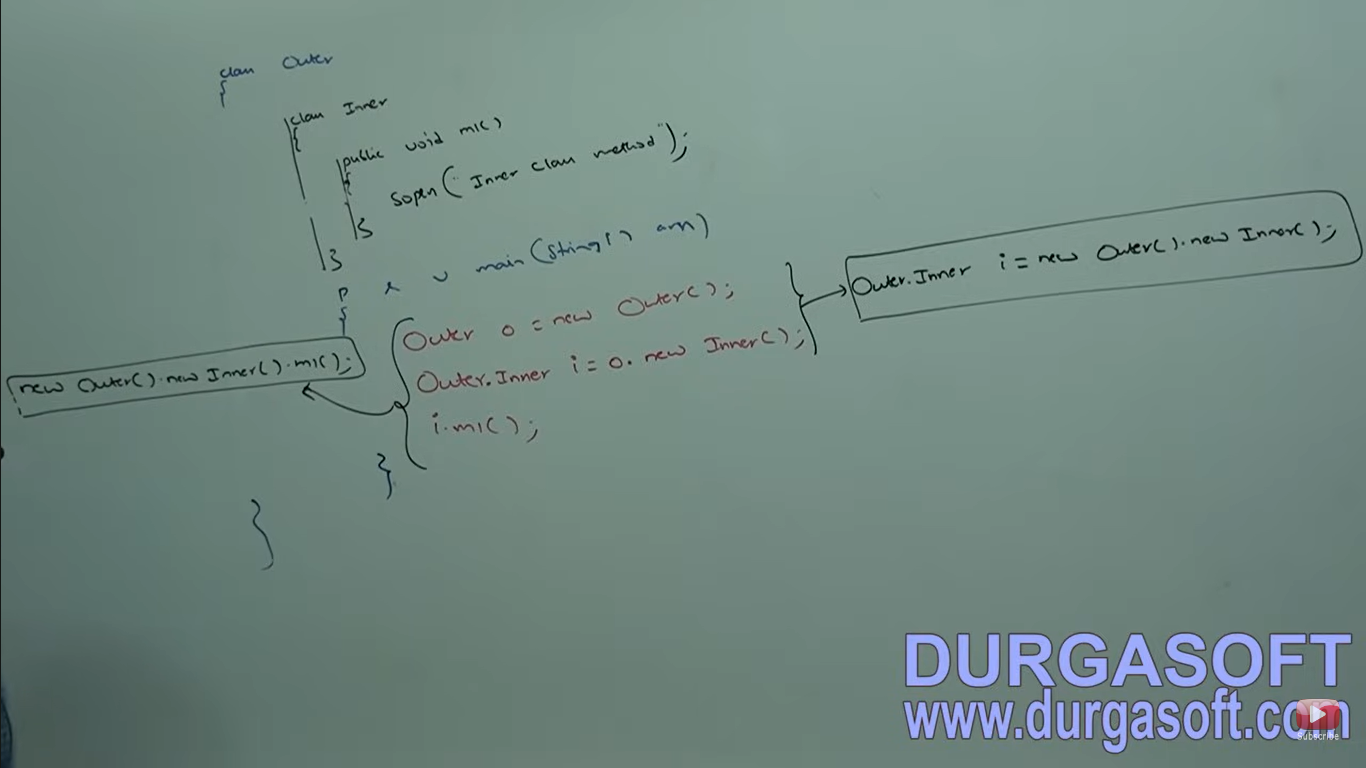 class Outer
{
class Inner
{
public void m1()
{
sopln("Inner class method");
}
}
p s v main(String[] args)
{
Outer o = new Outer();
Outer.Inner i = o.new Inner();
i.m1();
}
}
Outer.Inner i = new Outer().new Inner();
new Outer().new Inner().m1();
DURGASOFT
www.durgasoft.com
Subscribe